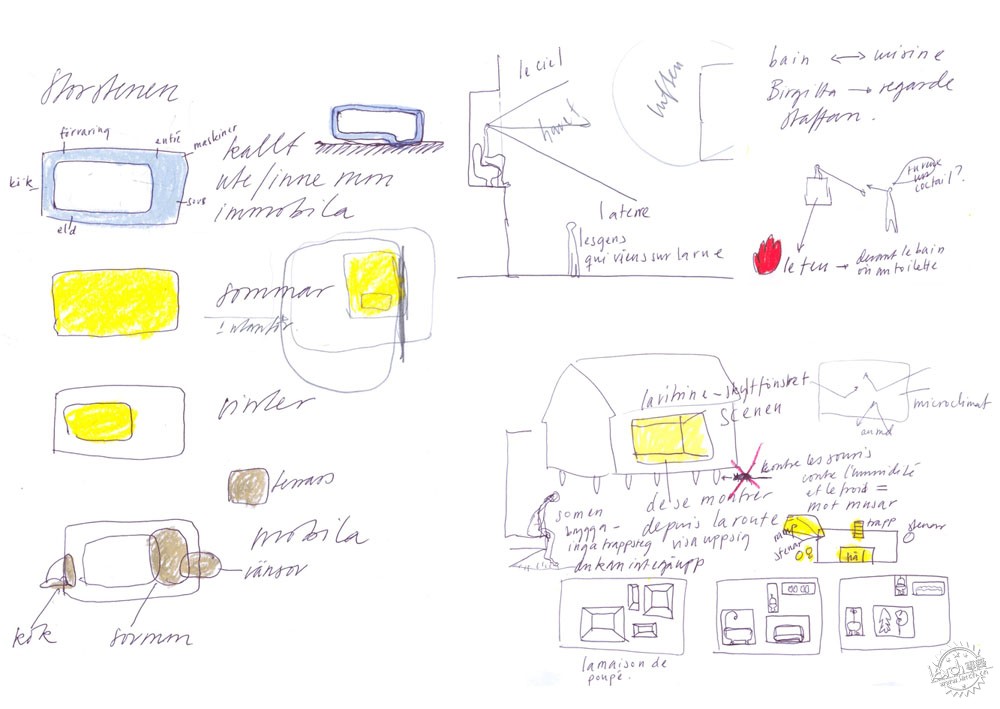 Storstenen
förvaring
entré
maskiner
kök
sova
eld
kallt
ute/inne mm
immobila
sommar
vinter
terrass
mobila
vänsor
kök
sovrum
le ciel
havet
la terre
les gens
qui viens sur la rue
luften
bain ↔ cuisine
Birgitta → regarde
Staffan.
coctail?
le feu → devant le bain
on an toilette
la vitrine - skyltfönstret
scenen
microclimat
contre les souris
contre l'humidité
et le froid =
mot musar
de se montrer
depuis la route
visa upp sig
som en
brygga -
inga trappsteg
du kan inte gå upp
ramp
trapp
stenar
stenar
hål
la maison de
poupé.